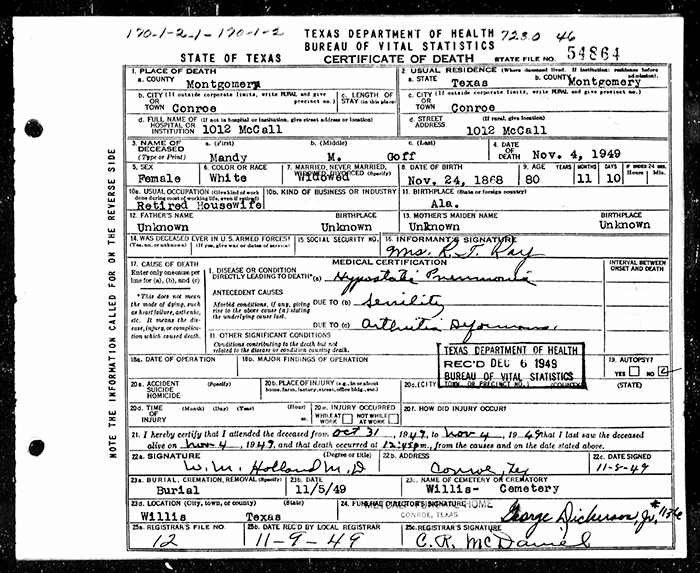 170-1-2-1-170-1-2 TEXAS DEPARTMENT OF HEALTH 7230 46
BUREAU OF VITAL STATISTICS
STATE OF TEXAS CERTIFICATE OF DEATH STATE FILE NO. 54864
NOTE THE INFORMATION CALLED FOR ON THE REVERSE SIDE
1. PLACE OF DEATH 2. USUAL RESIDENCE (Where deceased lived. If institution: residence before admission).
a. COUNTY Montgomery a. STATE Texas b. COUNTY Montgomery
b. CITY (If outside corporate limits, write RURAL and give precinct no.) c. LENGTH OF STAY (in this place) c. CITY (If outside corporate limits, write RURAL and give precinct no.)
OR TOWN Conroe OR TOWN Conroe
d. FULL NAME OF (If not in hospital or institution, give street address or location) HOSPITAL OR INSTITUTION 1012 McCall d. STREET ADDRESS (If rural, give location) 1012 McCall
3. NAME OF DECEASED (Type or Print) a. (First) b. (Middle) c. (Last) 4. DATE OF DEATH
Mandy M. Goff Nov. 4, 1949
5. SEX 6. COLOR OR RACE 7. MARRIED, NEVER MARRIED, WIDOWED, DIVORCED (Specify) 8. DATE OF BIRTH 9. AGE YEARS MONTHS DAYS IF UNDER 24 HRS. Hours Min.
Female White Widowed Nov. 24, 1868 80 11 10
10a. USUAL OCCUPATION (Give kind of work done during most of working life, even if retired) 10b. KIND OF BUSINESS OR INDUSTRY 11. BIRTHPLACE (State or foreign country)
Retired Housewife Ala.
12. FATHER'S NAME BIRTHPLACE 13. MOTHER'S MAIDEN NAME BIRTHPLACE
Unknown Unknown Unknown Unknown
14. WAS DECEASED EVER IN U.S. ARMED FORCES? 15. SOCIAL SECURITY NO. 16. INFORMANT'S SIGNATURE
(Yes, no, or unknown) (If yes, give war or dates of service) Mrs. R. T. Ray
17. CAUSE OF DEATH MEDICAL CERTIFICATION INTERVAL BETWEEN ONSET AND DEATH
Enter only one cause per line for (a), (b), and (c)
1. DISEASE OR CONDITION DIRECTLY LEADING TO DEATH* (a) Hypostatic Pneumonia
*This does not mean the mode of dying, such as heart failure, asthenia, etc. It means the disease, injury, or complication which caused death.
ANTECEDENT CAUSES
Morbid conditions, if any, giving rise to the above cause (a) stating the underlying cause last.
DUE TO (b) Senility
DUE TO (c) Arthritis Deformans
11. OTHER SIGNIFICANT CONDITIONS
Conditions contributing to the death but not related to the disease or condition causing death.
TEXAS DEPARTMENT OF HEALTH
REC'D DEC 6 1949
BUREAU OF VITAL STATISTICS
18a. DATE OF OPERATION 18b. MAJOR FINDINGS OF OPERATION 19. AUTOPSY?
YES NO
20a. ACCIDENT SUICIDE HOMICIDE (Specify) 20b. PLACE OF INJURY (e.g., in or about home, farm, factory, street, office bldg., etc.) 20c. (CITY, TOWN, OR PRECINCT NO.) (COUNTY) (STATE)
20d. TIME OF INJURY (Month) (Day) (Year) (Hour) m. 20e. INJURY OCCURRED WHILE AT WORK NOT WHILE AT WORK 20f. HOW DID INJURY OCCUR?
21. I hereby certify that I attended the deceased from Oct 31, 1949, to Nov 4, 1949 that I last saw the deceased
alive on Nov 4, 1949, and that death occurred at 12:45pm, from the causes and on the date stated above.
22a. SIGNATURE (Degree or title) 22b. ADDRESS 22c. DATE SIGNED
W. M. Holland M.D Conroe, Tex 11-8-49
23a. BURIAL, CREMATION, REMOVAL (Specify) 23b. DATE 23c. NAME OF CEMETERY OR CREMATORY
Burial 11/5/49 Willis- Cemetery
23d. LOCATION (City, town, or county) (State) 24. FUNERAL DIRECTOR'S SIGNATURE
Willis Texas HOME CONROE, TEXAS George Dickerson Jr.
25a. REGISTRAR'S FILE NO. 25b. DATE REC'D BY LOCAL REGISTRAR 25c. REGISTRAR'S SIGNATURE
12 11-9-49 C. R. McDaniel